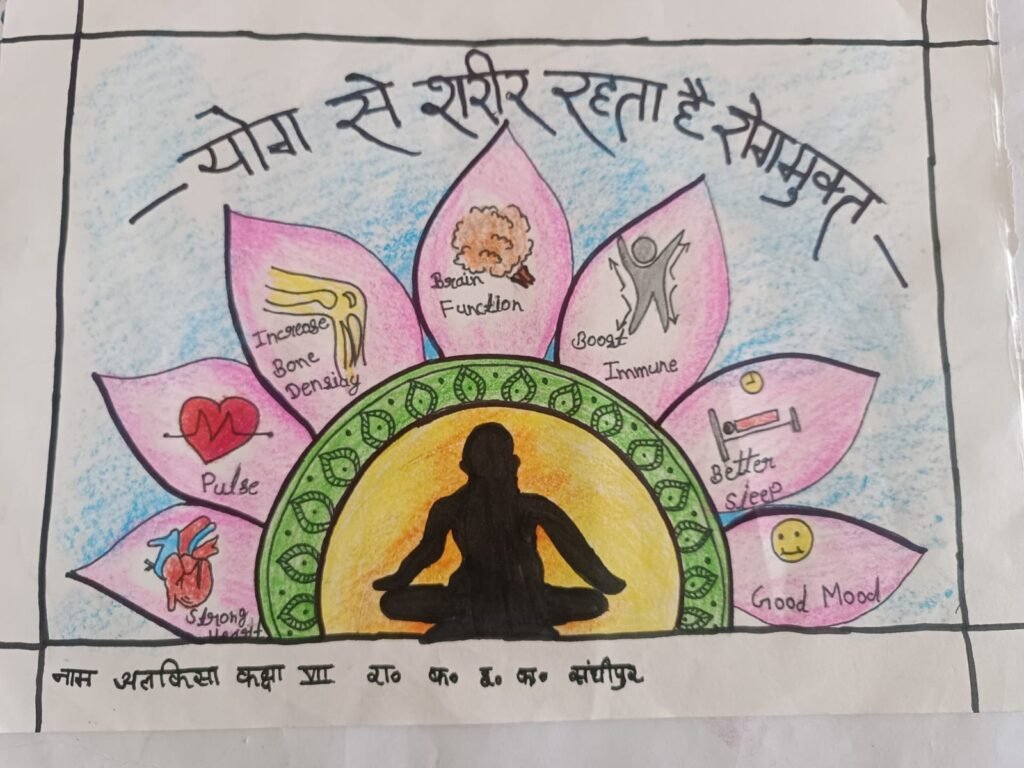 योग से शरीर रहता है रोगमुक्त
Brain
Function
Increase
Bone
Density
Boost
Immune
Pulse
Better
Sleep
Strong
Heart
Good Mood
नाम कक्षा VII रा० क० इ. क०